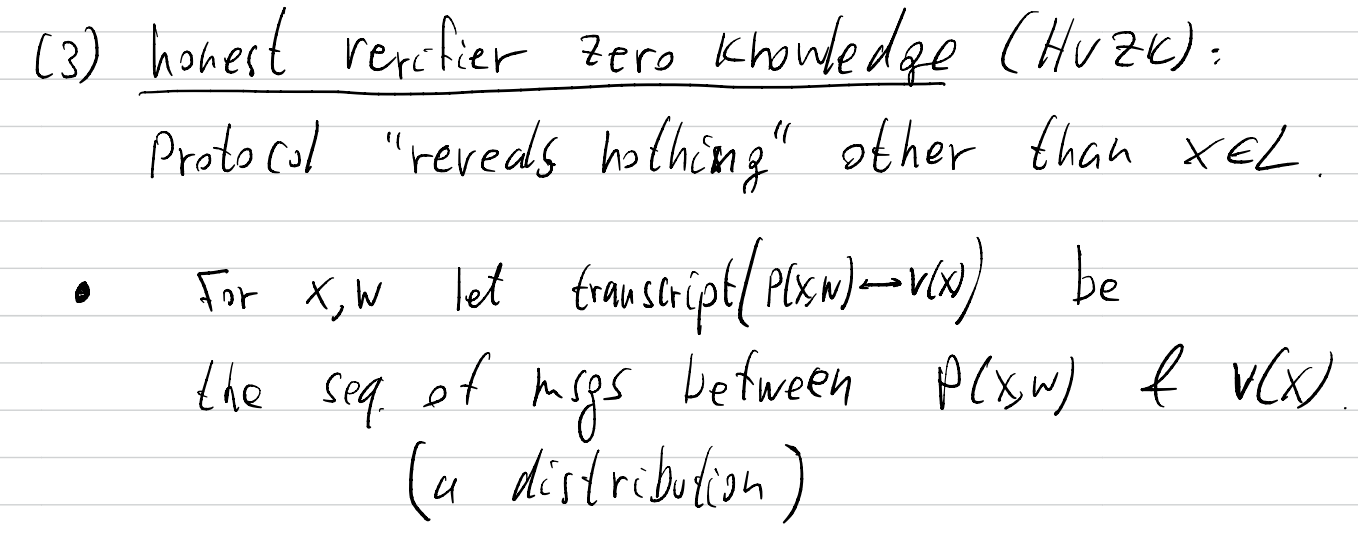 (3) honest verifier zero knowledge (HVZK):
Protocol "reveals nothing" other than x∈L.
• For x,w let transcript(P(x,w)↔V(x)) be
the seq. of msgs between P(x,w) & V(x).
(a distribution)